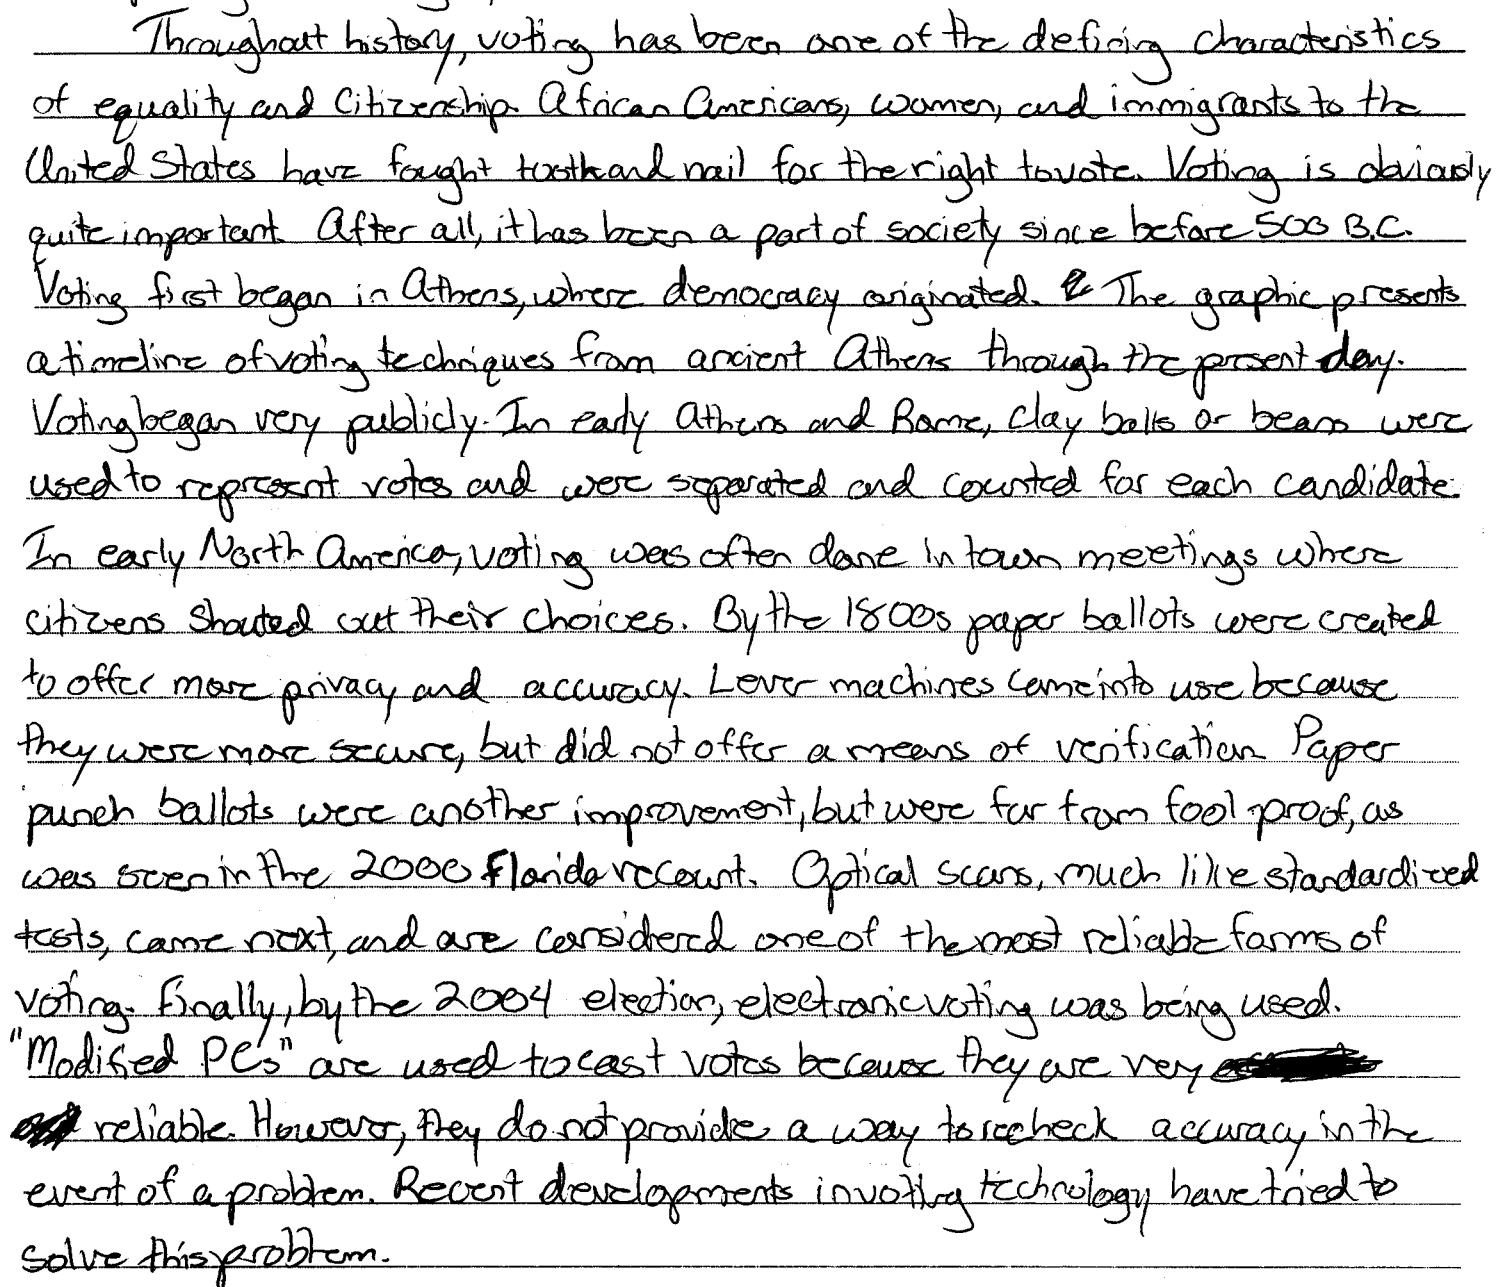 Throughout history, voting has been one of the defining characteristics
of equality and citizenship. African Americans, women, and immigrants to the
United States have fought tooth and nail for the right to vote. Voting is obviously
quite important. After all, it has been a part of society since before 500 B.C.
Voting first began in Athens, where democracy originated. The graphic presents
a timeline of voting techniques from ancient Athens through the present day.
Voting began very publicly. In early Athens and Rome, clay balls or beans were
used to represent votes and were separated and counted for each candidate.
In early North America, voting was often done in town meetings where
citizens shouted out their choices. By the 1800s paper ballots were created
to offer more privacy and accuracy. Lever machines came into use because
they were more secure, but did not offer a means of verification. Paper
punch ballots were another improvement, but were far from fool proof, as
was seen in the 2000 Florida recount. Optical scans, much like standardized
tests, came next, and are considered one of the most reliable forms of
voting. Finally, by the 2004 election, electronic voting was being used.
"Modified PCs" are used to cast votes because they are very
reliable. However, they do not provide a way to recheck accuracy in the
event of a problem. Recent developments in voting technology have tried to
solve this problem.